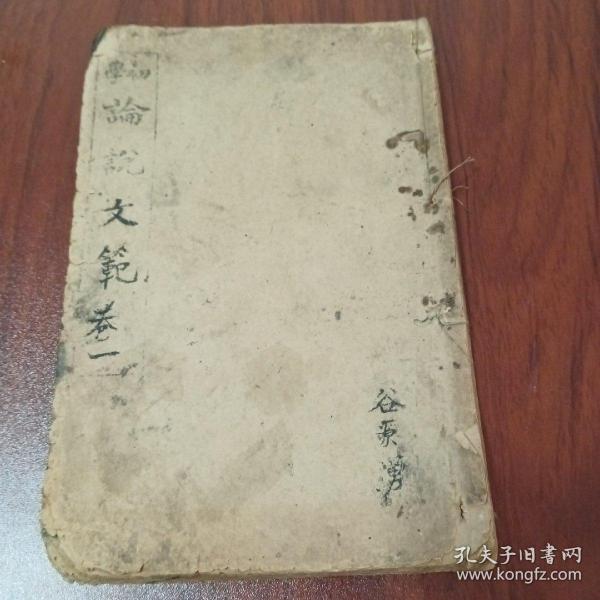 初學
論說文範卷一
谷源湧
孔夫子旧書网
www.kongfz.com